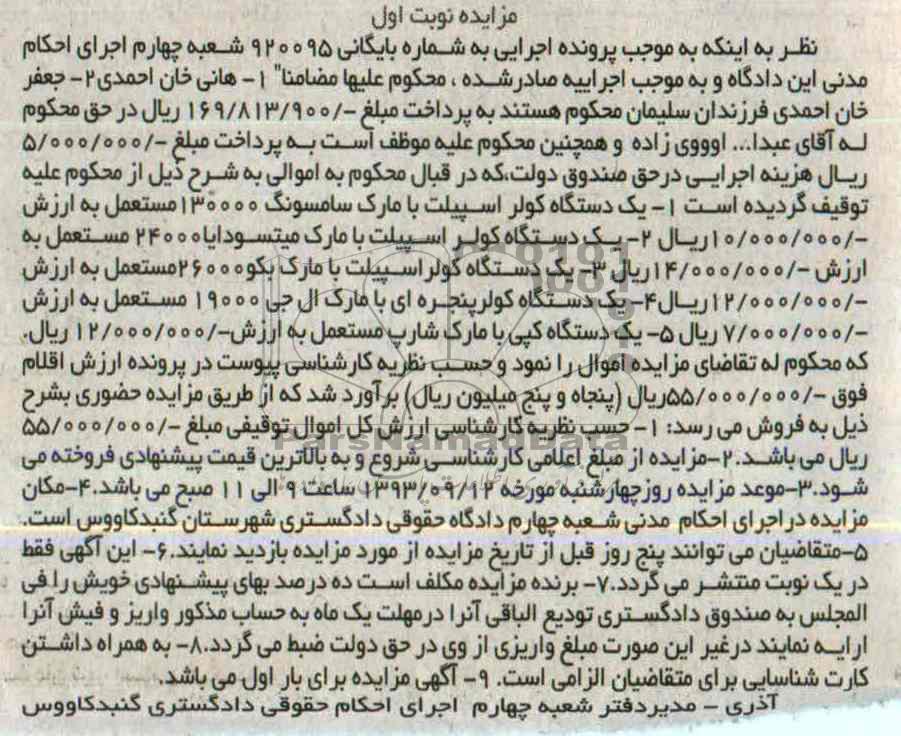 مزایده نوبت اول
نظر به اینکه به موجب پرونده اجرایی به شماره بایگانی ۹۲۰۰۹۵ شعبه چهارم اجرای احکام
مدنی این دادگاه و به موجب اجراییه صادرشده ، محکوم علیها مضامنا" ۱- هانی خان احمدی۲- جعفر
خان احمدی فرزندان سلیمان محکوم هستند به پرداخت مبلغ -/۱۶۹/۸۱۳/۹۰۰ ریال در حق محکوم
له آقای عبدا... اوووی زاده و همچنین محکوم علیه موظف است به پرداخت مبلغ -/۵/۰۰۰/۰۰۰
ریال هزینه اجرایی درحق صندوق دولت،که در قبال محکوم به اموالی به شرح ذیل از محکوم علیه
توقیف گردیده است ۱- یک دستگاه کولر اسپیلت با مارک سامسونگ ۱۳۰۰۰۰مستعمل به ارزش
-/۱۰/۰۰۰/۰۰۰ریال ۲- یک دستگاه کولر اسپیلت با مارک میتسودایا۲۴۰۰۰ مستعمل به
ارزش -/۱۴/۰۰۰/۰۰۰ریال ۳- یک دستگاه کولر اسپیلت با مارک بکو۲۶۰۰۰مستعمل به ارزش
-/۱۲/۰۰۰/۰۰۰ریال۴- یک دستگاه کولرپنجره ای با مارک ال جی ۱۹۰۰۰ مستعمل به ارزش
-/۷/۰۰۰/۰۰۰ ریال ۵- یک دستگاه کپی با مارک شارپ مستعمل به ارزش-/۱۲/۰۰۰/۰۰۰ ریال.
که محکوم له تقاضای مزایده اموال را نمود و حسب نظریه کارشناسی پیوست در پرونده ارزش اقلام
فوق -/۵۵/۰۰۰/۰۰۰ریال (پنجاه و پنج میلیون ریال) برآورد شد که از طریق مزایده حضوری بشرح
ذیل به فروش می رسد: ۱- حسب نظریه کارشناسی ارزش کل اموال توقیفی مبلغ -/۵۵/۰۰۰/۰۰۰
ریال می باشد.۲-مزایده از مبلغ اعلامی کارشناسی شروع و به بالاترین قیمت پیشنهادی فروخته می
شود.۳-موعد مزایده روزچهارشنبه مورخه ۱۳۹۳/۰۹/۱۲ ساعت ۹ الی ۱۱ صبح می باشد.۴-مکان
مزایده دراجرای احکام مدنی شعبه چهارم دادگاه حقوقی دادگستری شهرستان گنبدکاووس است.
۵-متقاضیان می توانند پنج روز قبل از تاریخ مزایده از مورد مزایده بازدید نمایند.۶- این آگهی فقط
در یک نوبت منتشر می گردد.۷- برنده مزایده مکلف است ده درصد بهای پیشنهادی خویش را فی
المجلس به صندوق دادگستری تودیع الباقی آنرا درمهلت یک ماه به حساب مذکور واریز و فیش آنرا
ارایه نمایند درغیر این صورت مبلغ واریزی از وی در حق دولت ضبط می گردد.۸- به همراه داشتن
کارت شناسایی برای متقاضیان الزامی است. ۹- آگهی مزایده برای بار اول می باشد.
آذری - مدیردفتر شعبه چهارم اجرای احکام حقوقی دادگستری گنبدکاووس
ParsNamadData